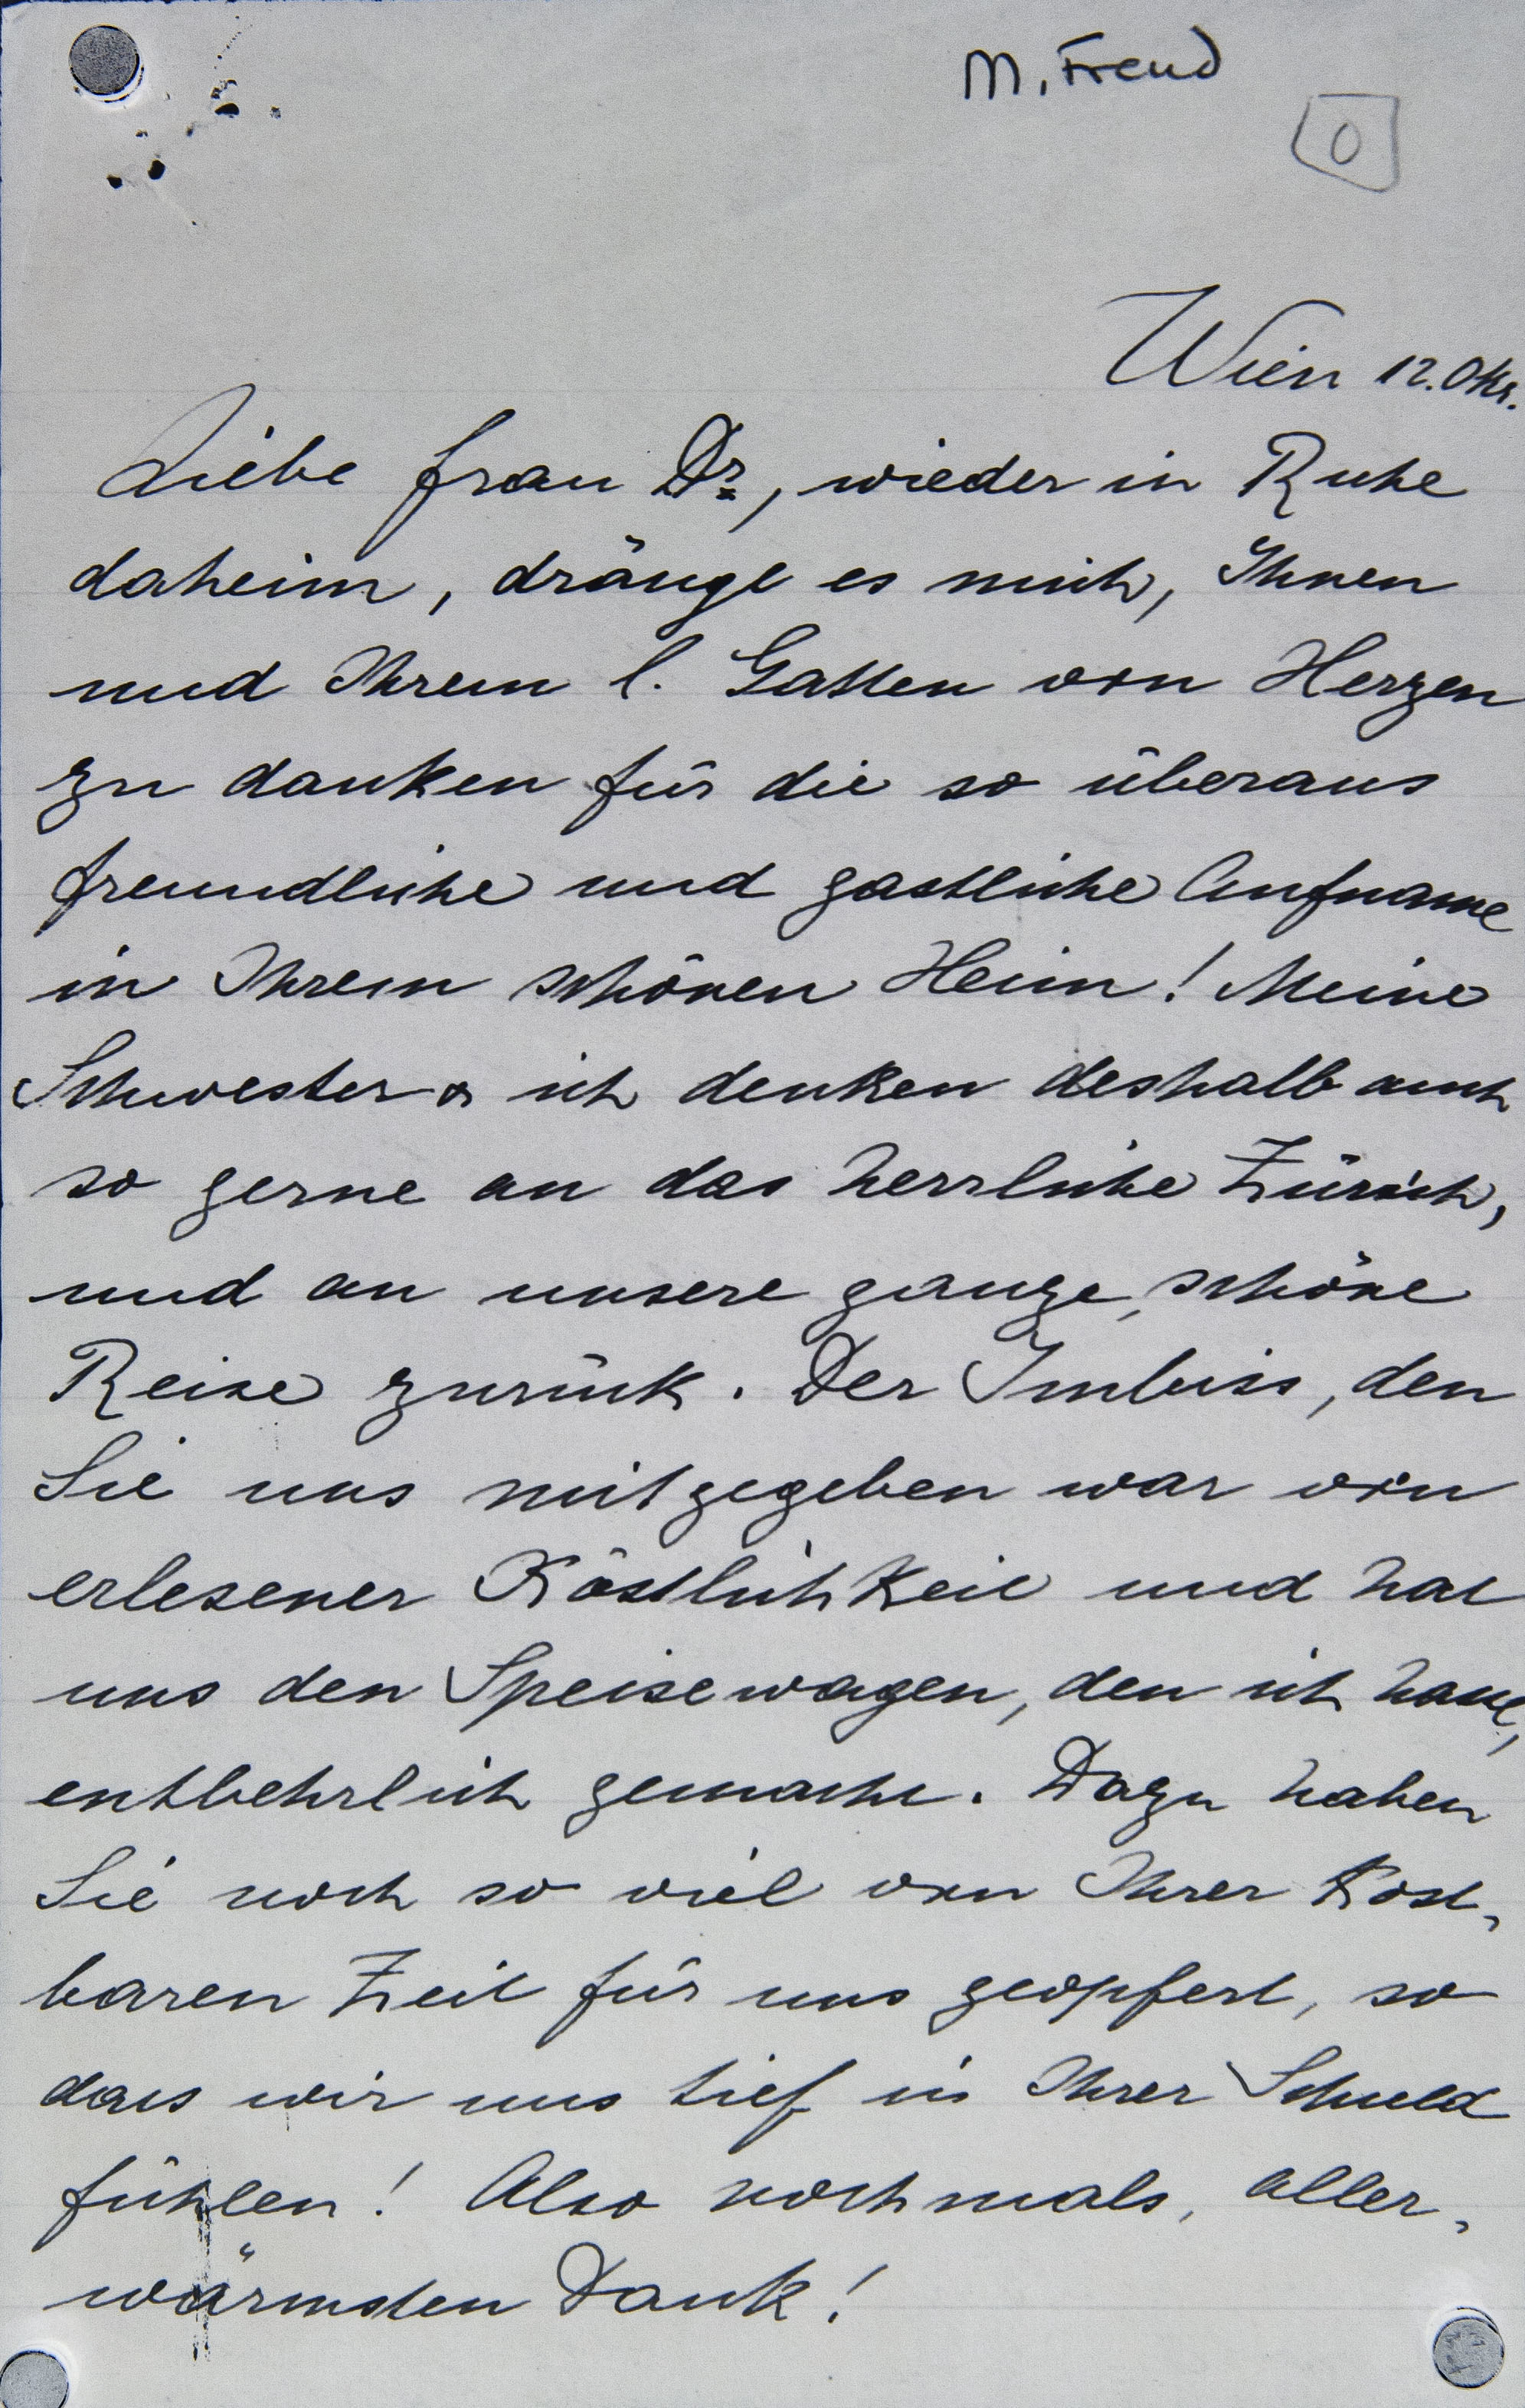 M. Freud
0
Wien 12. Okt.
Liebe Frau Dr, wieder in Ruhe
daheim, drängt es mich, Ihnen
und Ihrem l. Gatten von Herzen
zu danken für die so überaus
freundliche und gastliche Aufname
in Ihrem schönen Heim! Meine
Schwester & ich denken deshalb auch
so gerne an das herrliche Zürich,
und an unsere ganze, schöne
Reise zurück. Der Imbiss, den
Sie uns mitgegeben war von
erlesener Köstlichkeit und hat
uns den Speisewagen, den ich hasse,
entbehrlich gemacht. Dazu haben
Sie noch so viel von Ihrer kost-
baren Zeit für uns geopfert, so
dass wir uns tief in Ihrer Schuld
fühlen! Also nochmals, aller-
wärmsten Dank!